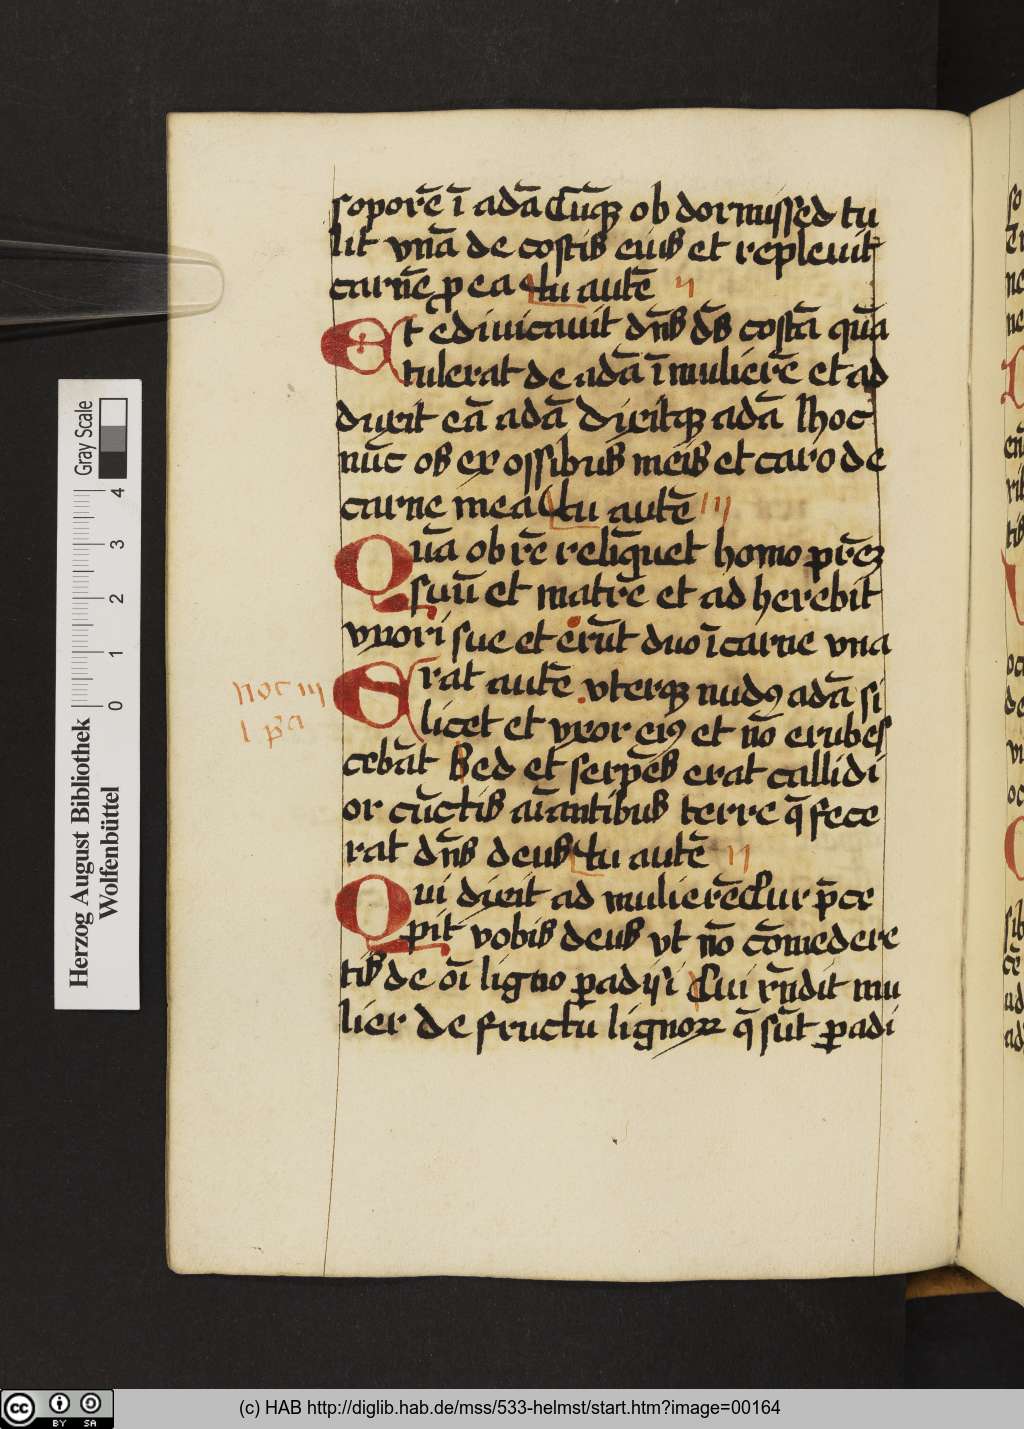 soporē ī adā Cūqꝫ ob dormissed tu
lit vnā de costis eius et repleuit
carnē ꝓ ea tu autē ii
Et edivicauit dn̄s ds̄ costā quā
tulerat de adā ī mulierē et ad
duxit eā adā Dixitqꝫ adā hoc
nūc os ex ossibus meis et caro de
carne mea tu autē iii
Quā ob rē relīquet homo pr̄eꝫ
suū et matrē et ad herebit
vxori sue et erūt duo ī carne vna
Erat autē vterqꝫ nudꝰ adā si
noc iii
i pa
licet et vxor eiꝰ et nō erubes
cebāt Sed et serpēs erat callidi
or cūctis aīantibus terre q̄ fece
rat dn̄s deus tu autē ii
Qui dixit ad mulierē Cur p̄ce
pit vobis deus vt nō cōmedere
tis de oī ligno ꝑadisi Cui rn̄dit mu
lier de fructu lignoꝝ q̄ sūt ꝑadi
Gray Scale
4
3
2
1
0
Herzog August Bibliothek
Wolfenbüttel
(c) HAB http://diglib.hab.de/mss/533-helmst/start.htm?image=00164
cc
BY SA